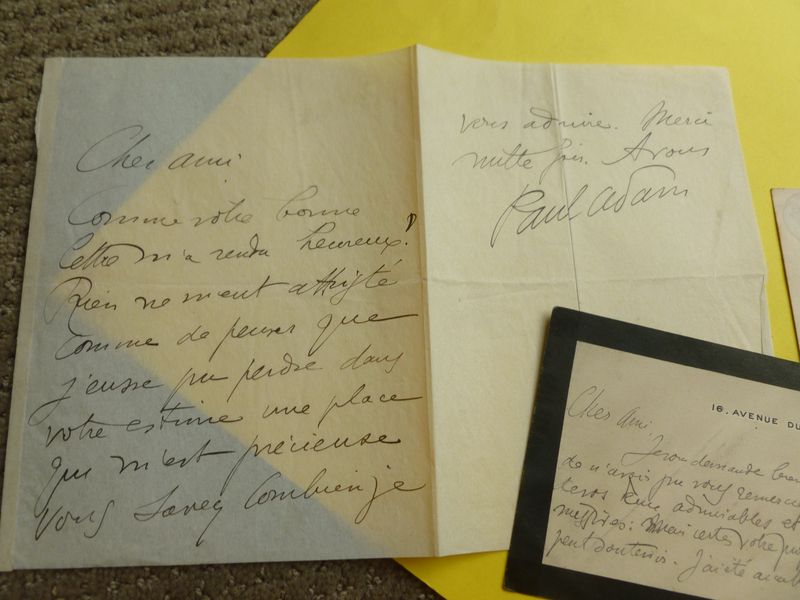 Cher ami
Comme votre bonne
lettre m'a rendu heureux!
Rien ne m'eut attristé
comme de penser que
j'eusse pu perdre dans
votre estime une place
qui m'est précieuse
Vous savez combien je
vous admire. Merci
mille fois. A vous
Paul Adam
16. AVENUE DU
Cher Ami,
Je vous demande
de n'avoir pu vous remerc
admirables et
Mais certes votre
peut douter. J'ai été